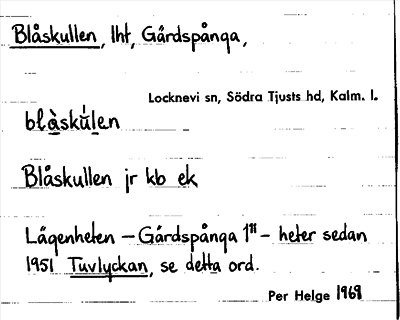 Blåskullen, lht, Gårdspånga,
Locknevi sn, Södra Tjusts hd, Kalm. l.
blå̀skúlen
Blåskullen jr kb ek
Lägenheten – Gårdspånga 1¹¹ – heter sedan
1951 Tuvlyckan, se detta ord.
Per Helge 1969